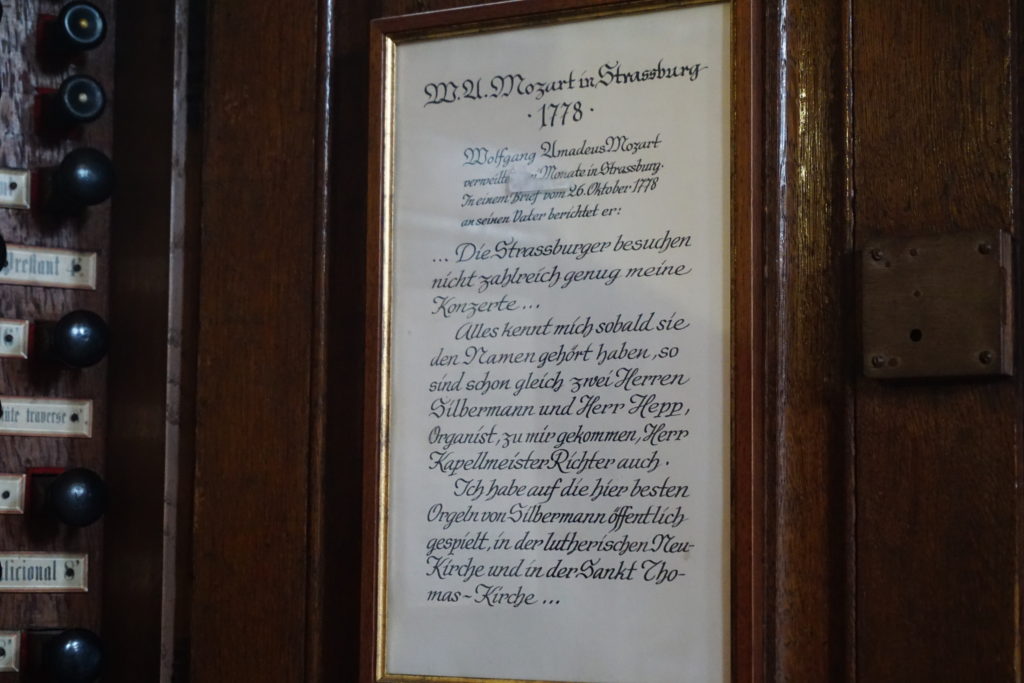 W.A. Mozart in Strassburg
· 1778 ·
Wolfgang Amadeus Mozart
verweilte Monate in Strassburg.
In einem Brief vom 26. Oktober 1778
an seinen Vater berichtet er:
... Die Strassburger besuchen
nicht zahlreich genug meine
Konzerte ...
Alles kennt mich sobald sie
den Namen gehört haben, so
sind schon gleich zwei Herren
Silbermann und Herr Hepp,
Organist, zu mir gekommen, Herr
Kapellmeister Richter auch.
Ich habe auf die hier besten
Orgeln von Silbermann öffentlich
gespielt, in der lutherischen Neu-
Kirche und in der Sankt Tho-
mas-Kirche ...
Prestant 4
flûte traverse
licional 8'